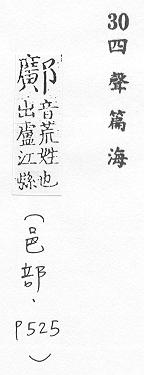 30四聲篇海
鄺音荒姓也
出盧江縣
(邑部、P525)